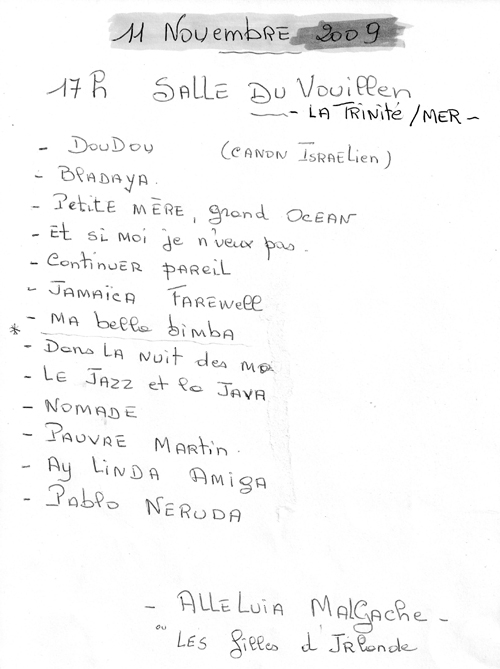 11 Novembre 2009
17h SALLE Du Vouillen
- LA Trinité / MER -
- DouDou (CANON Israëlien)
- BPADAYA.
- Petite MÈRE, grand OCEAN
- Et si moi je n'veux pas.
- Continuer pareil
- JAMAÏCA FAREWELL
* - MA bella bimba
- Dans LA nuit des
- LE JAZZ et la JAVA
- NOMADE
- PAUVRE MARTIN.
- Ay LINDA AMIGA
- Pablo NERUDA
- ALLELUIA MALGache -
ou LES filles d'Irlande